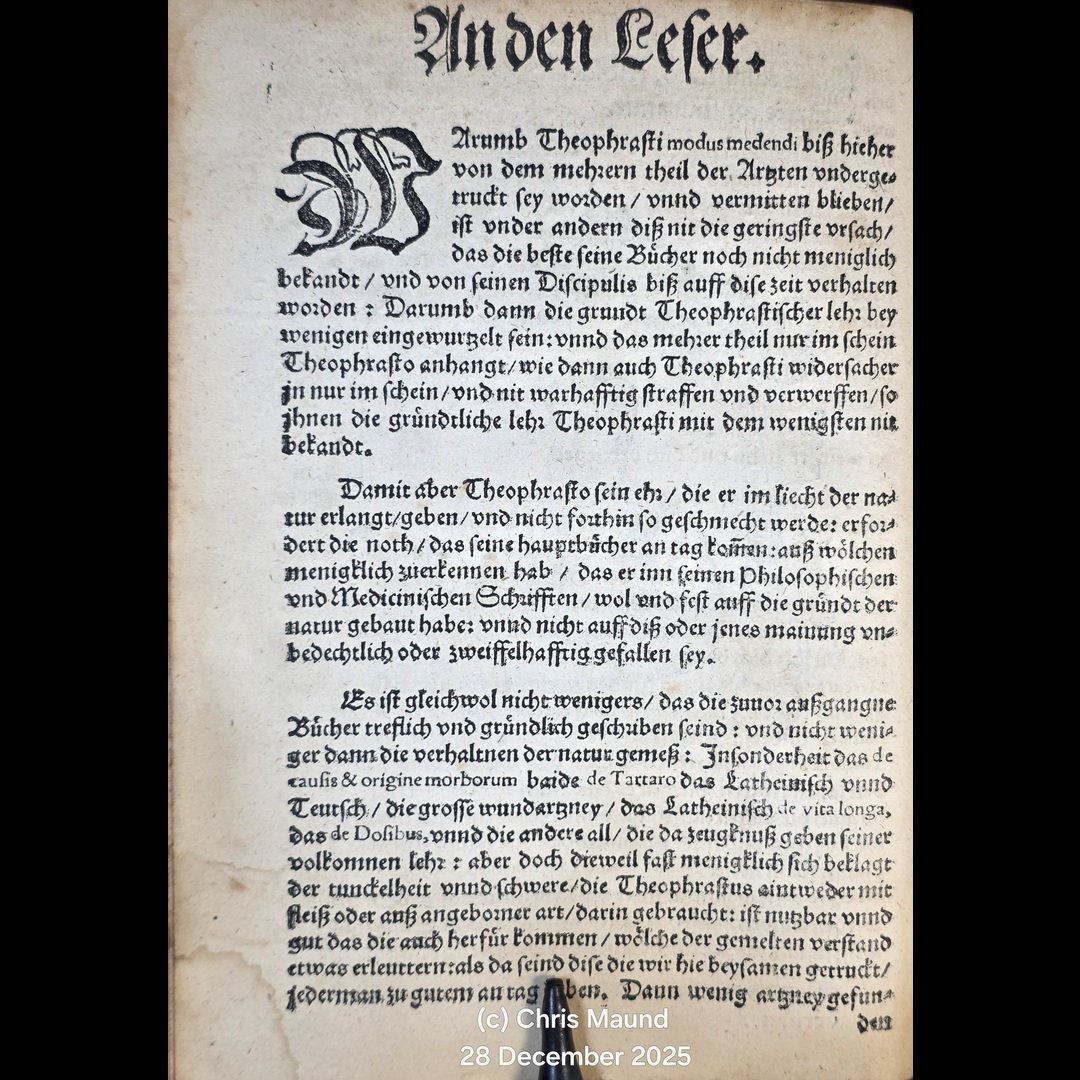 An den Leser.
WArumb Theophrasti modus medendi biß hieher
von dem mehrern theil der Artzten vnderge-
truckt sey worden / vnnd vermitten blieben /
ist vnder andern diß nit die geringste vrsach /
das die beste seine Bücher noch nicht meniglich
bekandt / vnd von seinen Discipulis biß auff dise zeit verhalten
worden : Darumb dann die grundt Theophrastischer lehr bey
wenigen eingewurtzelt sein: vnnd das mehrer theil nur im schein
Theophrasto anhangt / wie dann auch Theophrasti widersacher
jn nur im schein / vnd nit warhafftig straffen vnd verwerffen / so
jhnen die gründtliche lehr Theophrasti mit dem wenigsten nit
bekandt.
Damit aber Theophrasto sein ehr / die er im liecht der na-
tur erlangt / geben / vnd nicht forthin so geschmecht werde: erfor-
dert die noth / das seine hauptbücher an tag kom̃en: auß wölchen
menigklich zuerkennen hab / das er inn seinen Philosophischen
vnd Medicinischen Schrifften / wol vnd fest auff die gründt der
natur gebaut habe: vnnd nicht auff diß oder jenes mainung vn-
bedechtlich oder zweiffelhafftig gefallen sey.
Es ist gleichwol nicht wenigers / das die zuuor außgangne
Bücher treflich vnd gründlich geschriben seind : vnd nicht weni-
ger dann die verhaltnen der natur gemeß : Insonderheit das de
causis & origine morborum baide de Tartaro das Latheinisch vnnd
Teutsch / die grosse wundartzney / das Latheinisch de vita longa,
das de Dosibus, vnnd die andere all / die da zeugknuß geben seiner
volkomnen lehr : aber doch dieweil fast menigklich sich beklagt
der tunckelheit vnnd schwere / die Theophrastus eintweder mit
fleiß oder auß angeborner art / darin gebraucht: ist nutzbar vnnd
gut das die auch herfür kommen / wölche der gemelten verstand
etwas erleuttern: als da seind dise die wir hie beysamen getruckt /
jederman zu gutem an tag Dann wenig artzney gefun-
den
(c) Chris Maund
28 December 2025